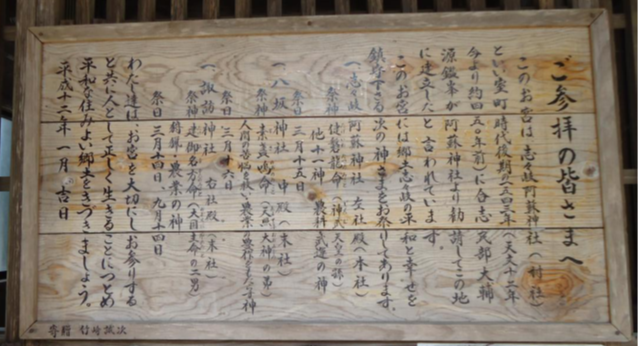 ご参拝の皆さまへ
このお宮は志々岐阿蘇神社(村社)
といい室町時代後期一五四三年(天文十二年
今より約四五〇年前)に合志 式部大輔
源鑑峯が阿蘇神社より勧請してこの地
に建立したと言われています。
このお宮には郷土志々岐の平和と幸せを
鎮守する次の神さまをお祭りしてあります。
一、志々岐阿蘇神社 左社殿(本社)
祭神 健磐龍命(神武天皇の孫)
他十一神 農耕武道の神
祭日 三月十五日
一、八坂神社 中殿(末社)
祭神 素戔嗚命(天照大神の弟)
人間の苦悩を救い農業
祭日 三月十六日
一、諏訪神社 右社殿(末社)
祭神 建御名方命(大国主命の二男)
狩猟・農業の神
祭日 三月十四日、九月十四日
わたし達はお宮を大切にしお参りする
と共に人として正しく生きることにつとめ
平和な住みよい郷土をきづきましょう。
平成十二年一月 吉日
寄贈 竹崎